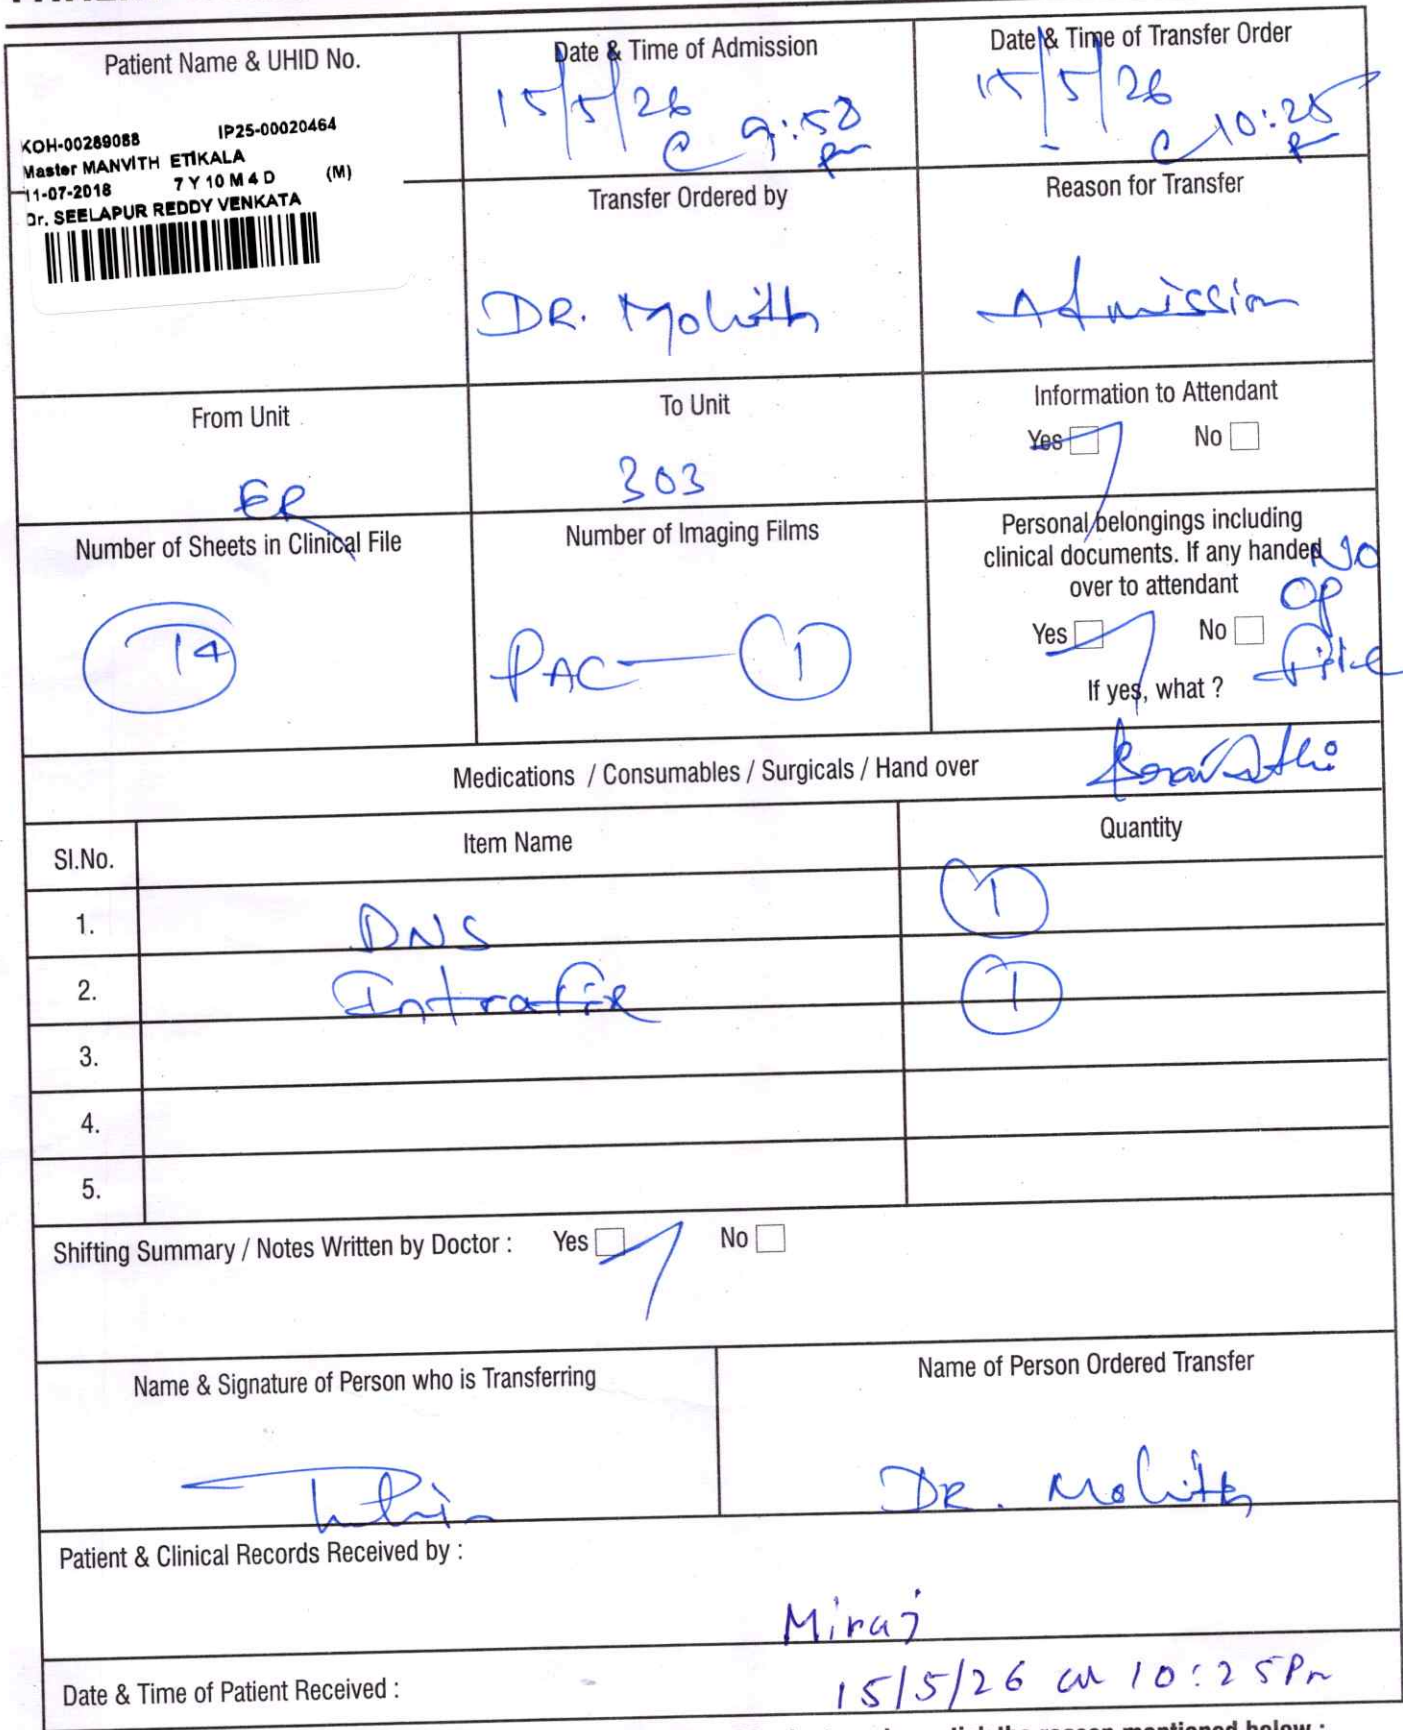 Patient Name & UHID No.
KOH-00289088 IP25-00020464
Master MANVITH ETIKALA
11-07-2018 7 Y 10 M 4 D (M)
Dr. SEELAPUR REDDY VENKATA
Date & Time of Admission
15/5/26
@ 9:58
pm
Date & Time of Transfer Order
15/5/26
@ 10:25
pm
Transfer Ordered by
DR. Mohith
Reason for Transfer
Admission
From Unit
ER
To Unit
303
Information to Attendant
Yes No
Number of Sheets in Clinical File
14
Number of Imaging Films
PAC — 1
Personal belongings including
clinical documents. If any handed
over to attendant
Yes No
If yes, what ?
NO
OP
File
Medications / Consumables / Surgicals / Hand over
Sl.No. Item Name Quantity
1. DNS 1
2. Intrafix 1
3.
4.
5.
Shifting Summary / Notes Written by Doctor : Yes No
Name & Signature of Person who is Transferring
Name of Person Ordered Transfer
DR. Mohith
Patient & Clinical Records Received by :
Miraj
Date & Time of Patient Received :
15/5/26 at 10:25Pm
the reason mentioned below :